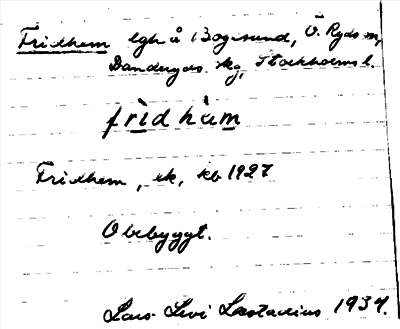 Fridhem lgh å Bogesund, Ö. Ryds sn,
Danderyds skg, Stockholms l.
frìd hèm
Fridhem, ek, kb 1927
Obebyggt.
Lars Levi Læstadius 1934.